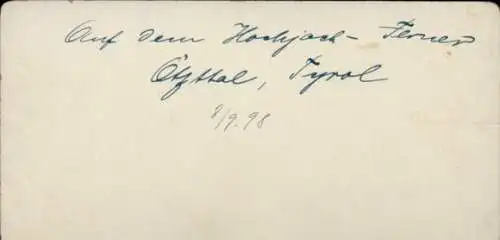 Auf dem Hochjoch-Ferner
Ötzthal, Tyrol
8/9.98